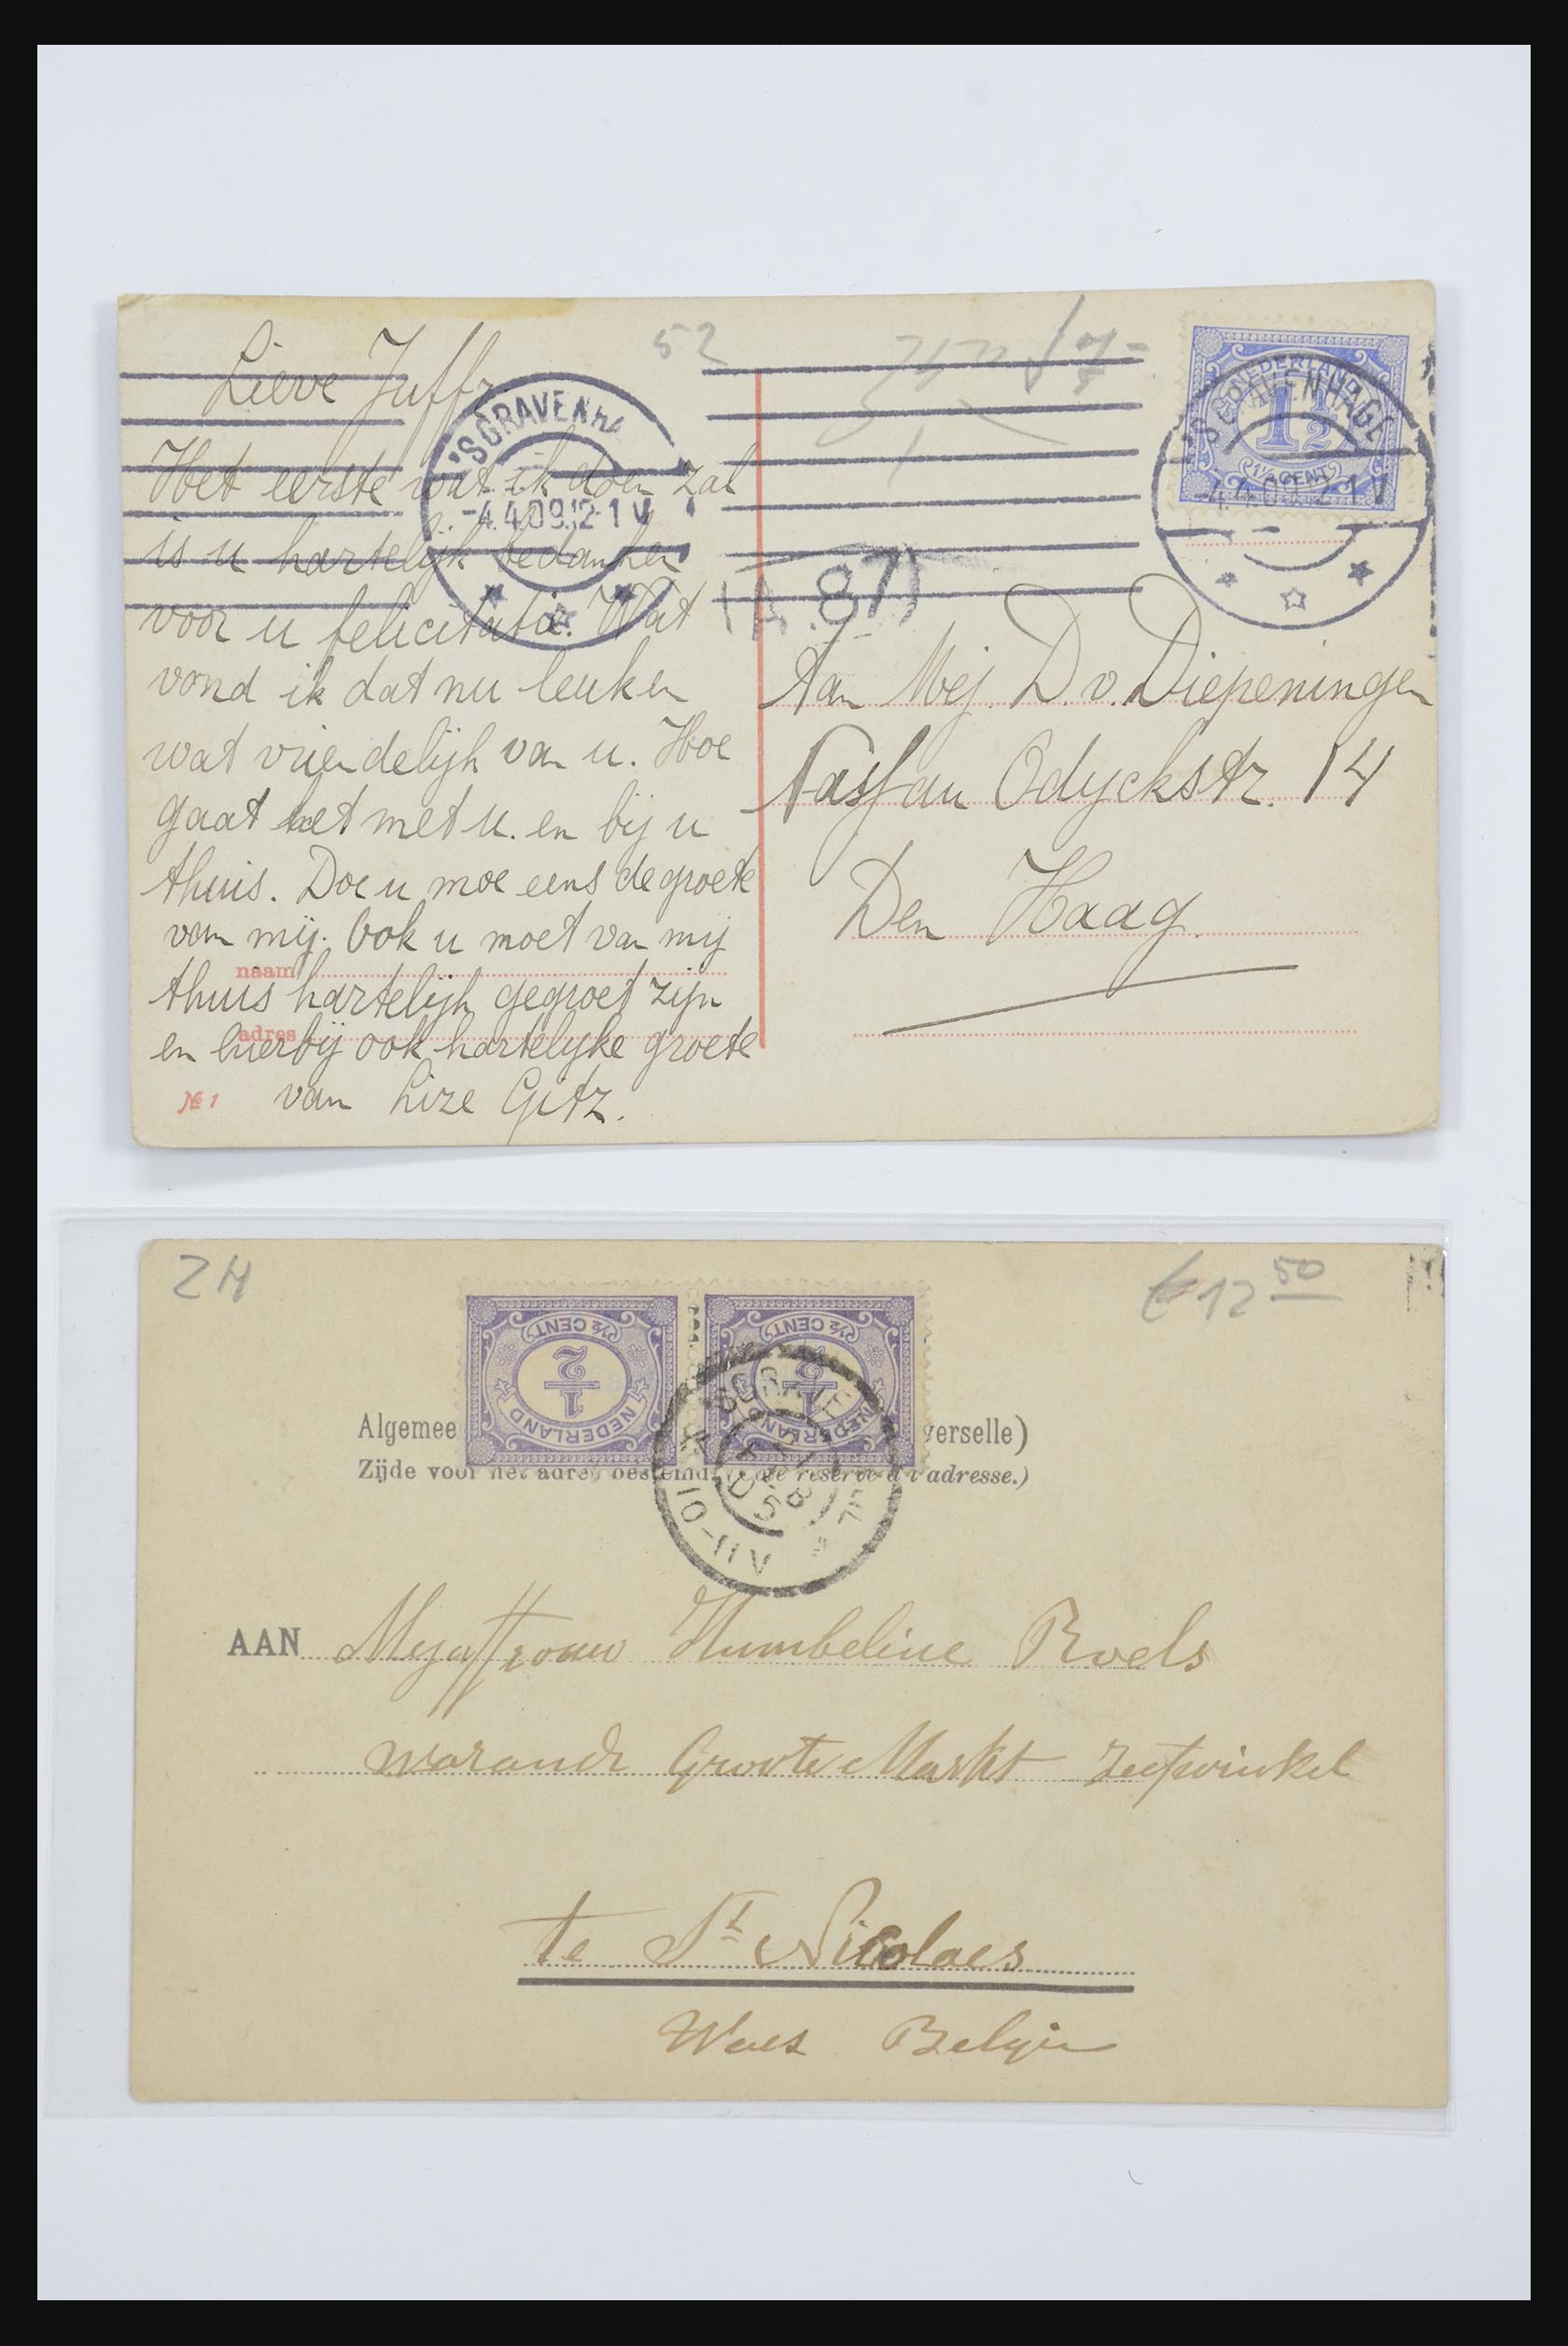 Lieve Juffr.
52
Het eerste wat ik doen zal
is u hartelijk bedanken
voor u felicitatie. Wat
vond ik dat nu leuk en
wat vriendelijk van u. Hoe
gaat het met u. en bij u
thuis. Doe u moe eens de groete
van mij. Ook u moet van mij
naam
thuis hartelijk gegroet zijn
adres
en hierbij ook hartelijke groete
№ 1 van Lize Gitz.
'SGRAVENHA
-4.4.09.12-1V
(A.87)
NEDERLAND
1 1/2
1½ CENT
'SGRAVENHAGE
-4.4.0 12-1V
Aan Mej. D. v. Diepeningen
Nassau Odyckstr. 14
Den Haag.
ZH
€ 12 50
½ CENT
1/2
NEDERLAND
½ CENT
1/2
NEDERLAND
'SGRAVE
10-11V
Algemee verselle)
Zijde voor het adres bestemd. réservé à l'adresse.)
AAN Mejuffrouw Humbeline Roels
warande Groote Markt Zeepwinkel
te St Nicolaes
Waes Belgie